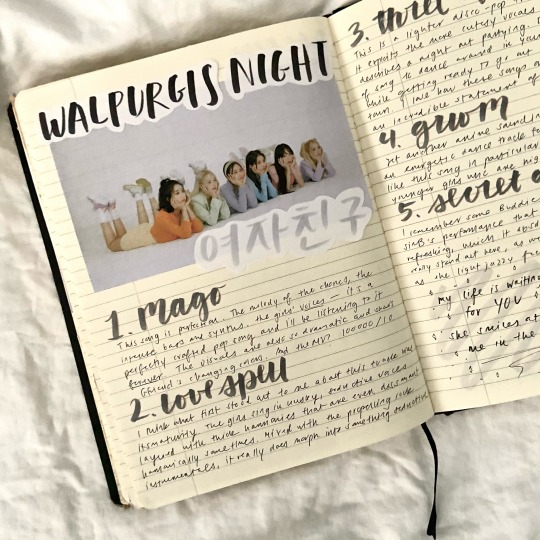 WALPURGIS NIGHT
여자친구
1. mago
This song is perfection. The melody of the chorus, the
intense bass and synths, the girls' voices — it's a
perfectly crafted pop song and I'll be listening to it
forever. The visuals are also so dramatic and
Gfriend's changing 100000/10
2. love spell
I think what first stood out to me about this to me was
its maturity. The girls sing in husky, seductive voices
layered with thick harmonies that are even dissonant
harmonically sometimes. Mixed with the propelling
instrumentals, it really does morph into something seductive
3. three
This is a lighter disco-pop
It exploits the more cutesy vocals
describes a night out partying.
of song to dance around in your
while getting ready to go out
I love how these songs
an incredible statement of
4. gr
yet another anime
an energetic dance track
like this song in particular
younger girls
5. secret
I remember some Buddies
SinB's performance that
refreshing, which it
really stand out here, as
as the light jazzy
my life is waiting
for YOU
she smiles at
me in the